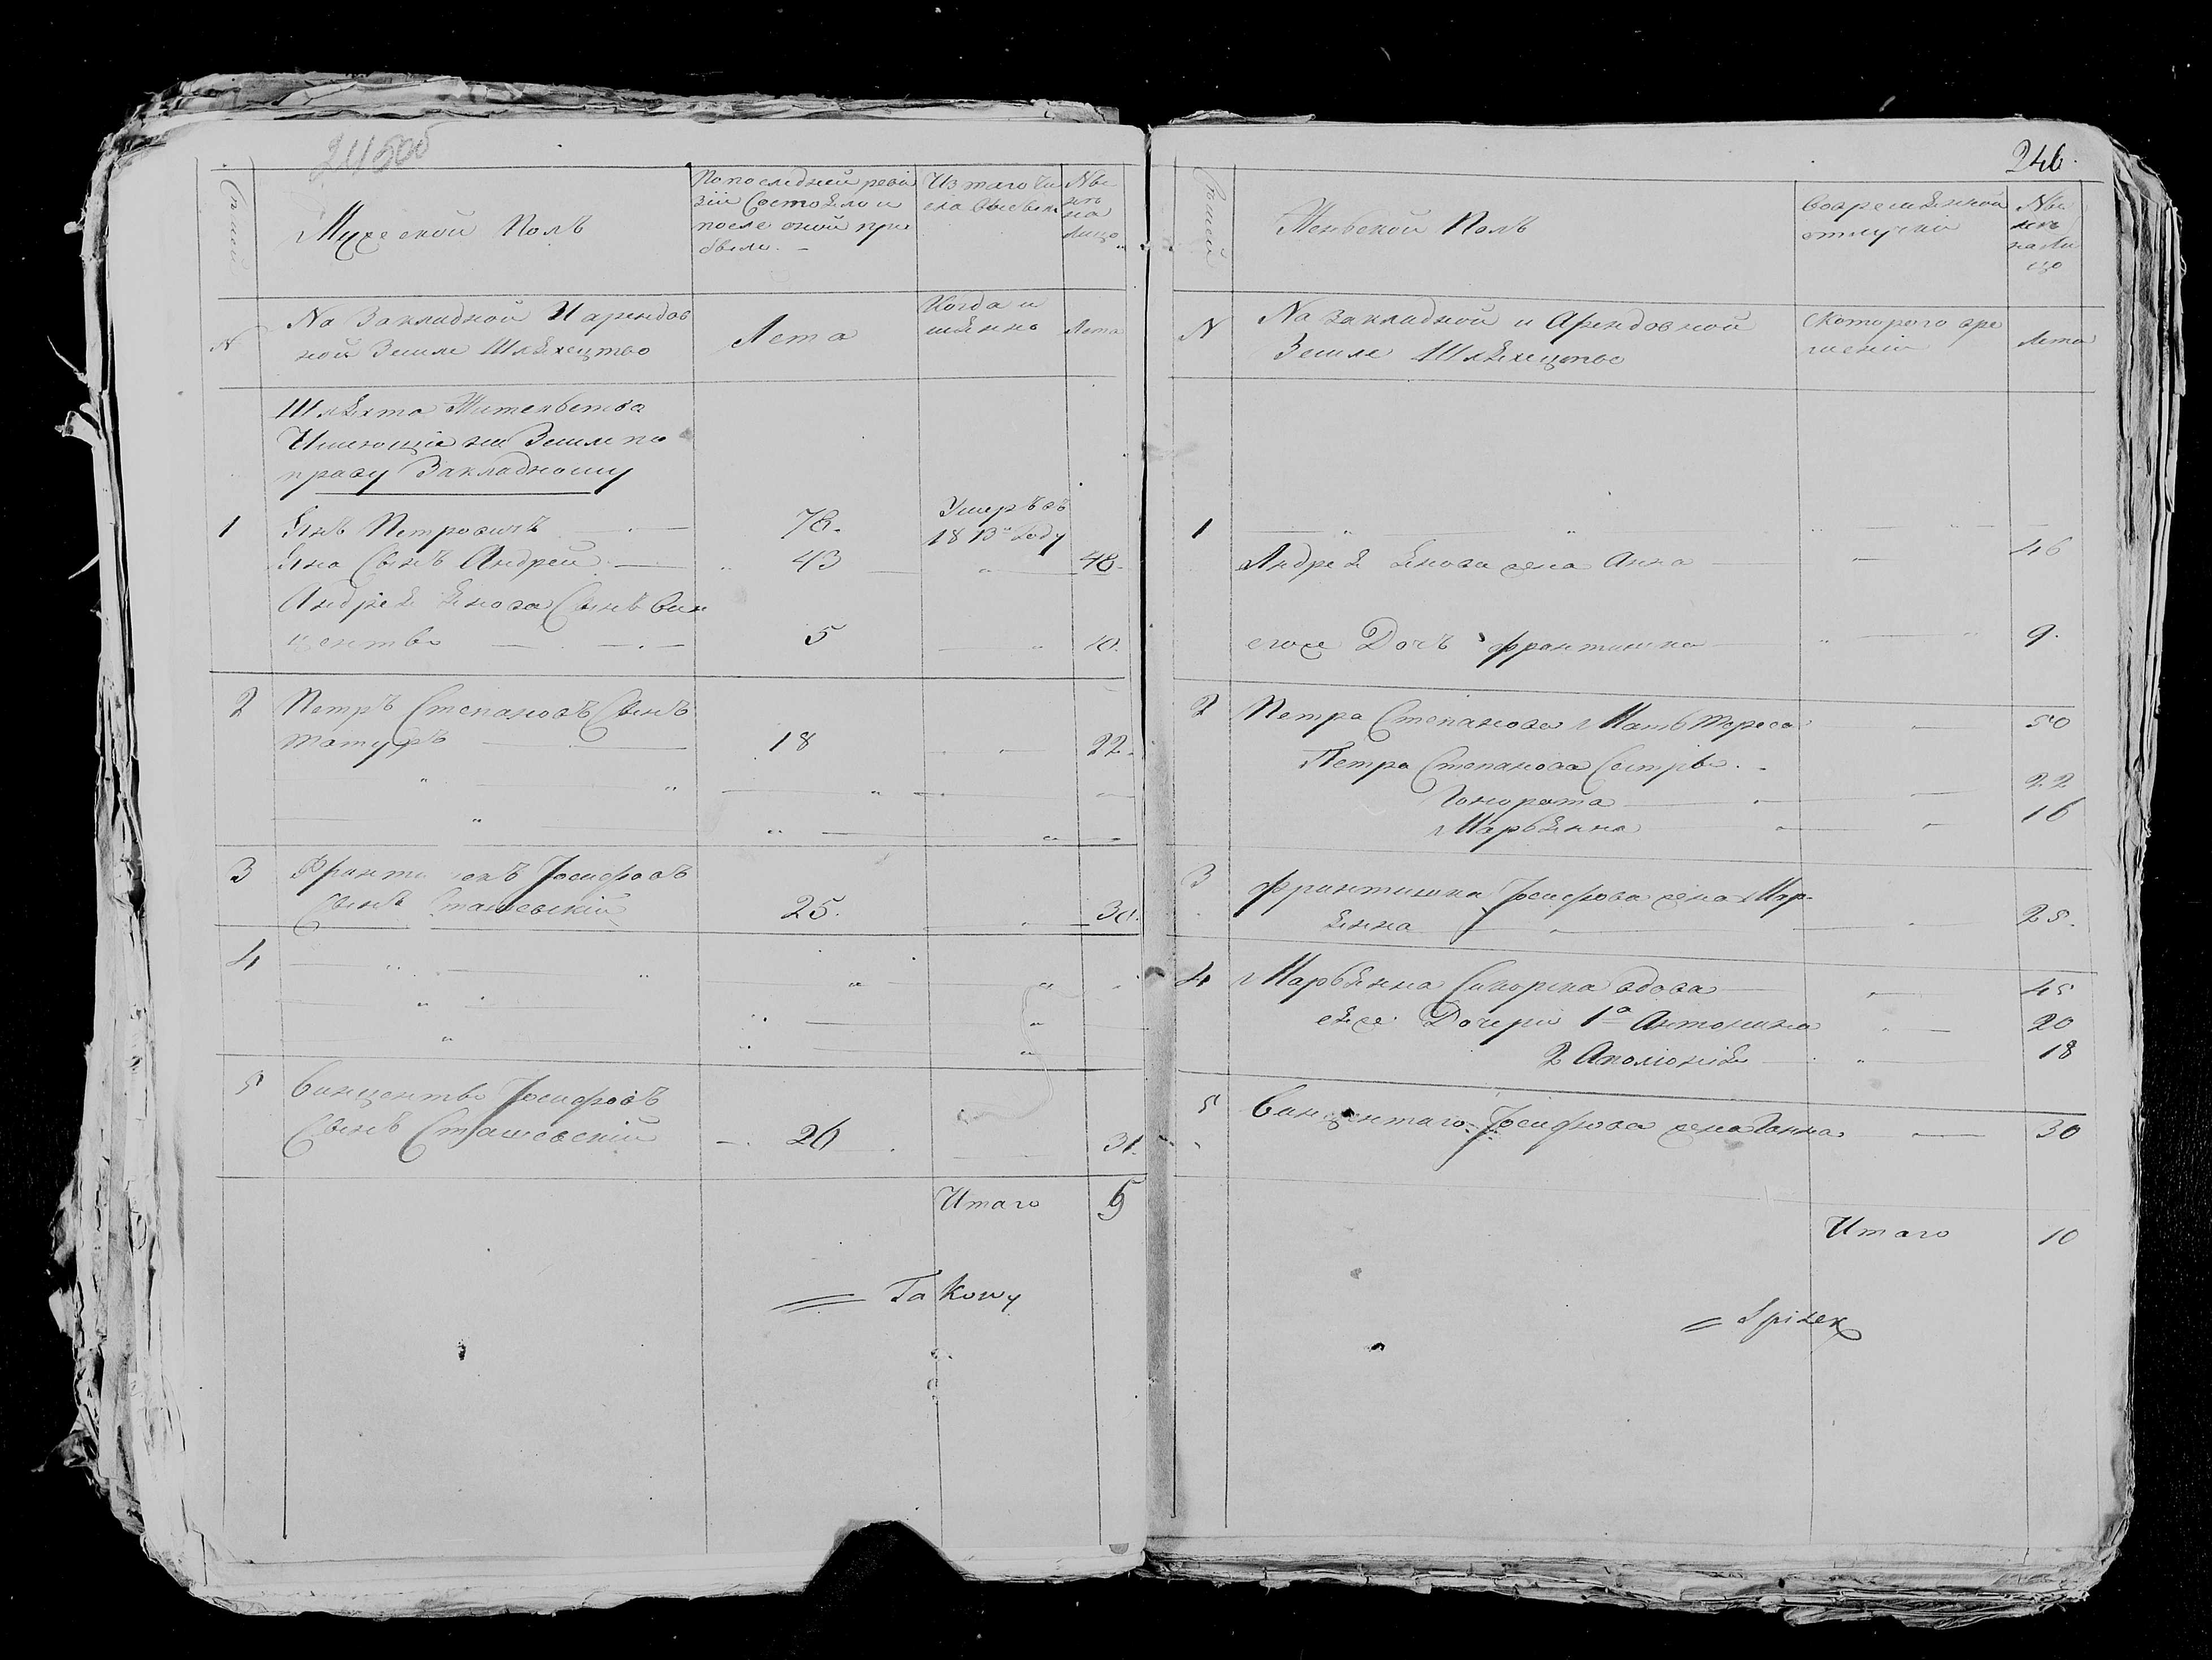 245 об
Семей
Мужеской Полъ
По последней реви
зіи Состояло и
после оной при
было.
Из таго чи
сла выбыло
Ны
не
на
Лицо
N
На Закладной И арендов
ной Земле Шляхецтво
Лета
Когда и
мянно
Лета
Шляхта Жительства
Имеющіе на Земле по
праву Закладному
1
Янъ Петровичъ
78.
Умеръ въ
18 13 Году
Яна Сынъ Андрей
43
48.
Андрея Янова Сынъ Вин
центы
5
10.
2
Петръ Степановъ Сынъ
Татуръ
18
22.
3
Франти екъ Іосифовъ
Сынъ Сташевскій
25.
30.
4
5
Винценты Іосифовъ
Сынъ Сташевскій
26
31.
Итаго
5
Takowy
246.
Семей
Женьской Полъ
Во времянной
отлучки
Ны
не
на Ли
цо
N
На закладной и Арендовной
Земле Шляхецтво
С Которого вре
мении
Лета
1
Андрея Янова жена Анна
46
егоже Дочъ Франтишка
9.
2
Петра Степанова Мать Тереса
50
Петра Степанова Сестры.
Гонората
22
Марьянна
16
3
Франтишка Іосифова жена Мар-
янна
25.
4
Марьянна Сикорска вдова
45
еяже Дочери 1а Антонина
20
2 Аполіонія
18
5
Винцентаго Іосифова жена Ганна
30
Итаго
10
Spisek